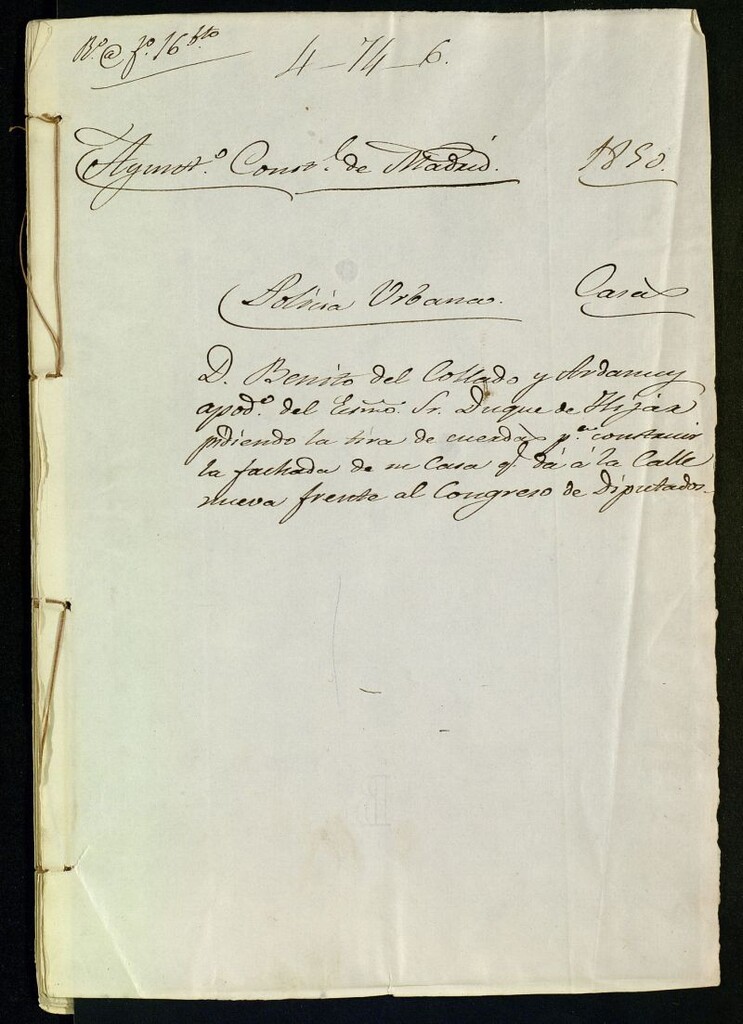 Rº @ fº 16 bto
4-74-6.
Aymtº. Constl. de Madrid. 1850.
Policia Urbana. Casas
D. Benito del Collado y Ardanuy
apodº. del Exmo. Sr. Duque de Hijar
pidiendo la tira de cuerdas pª. construir
la fachada de su Casa q. dá á la Calle
nueva frente al Congreso de Diputados.